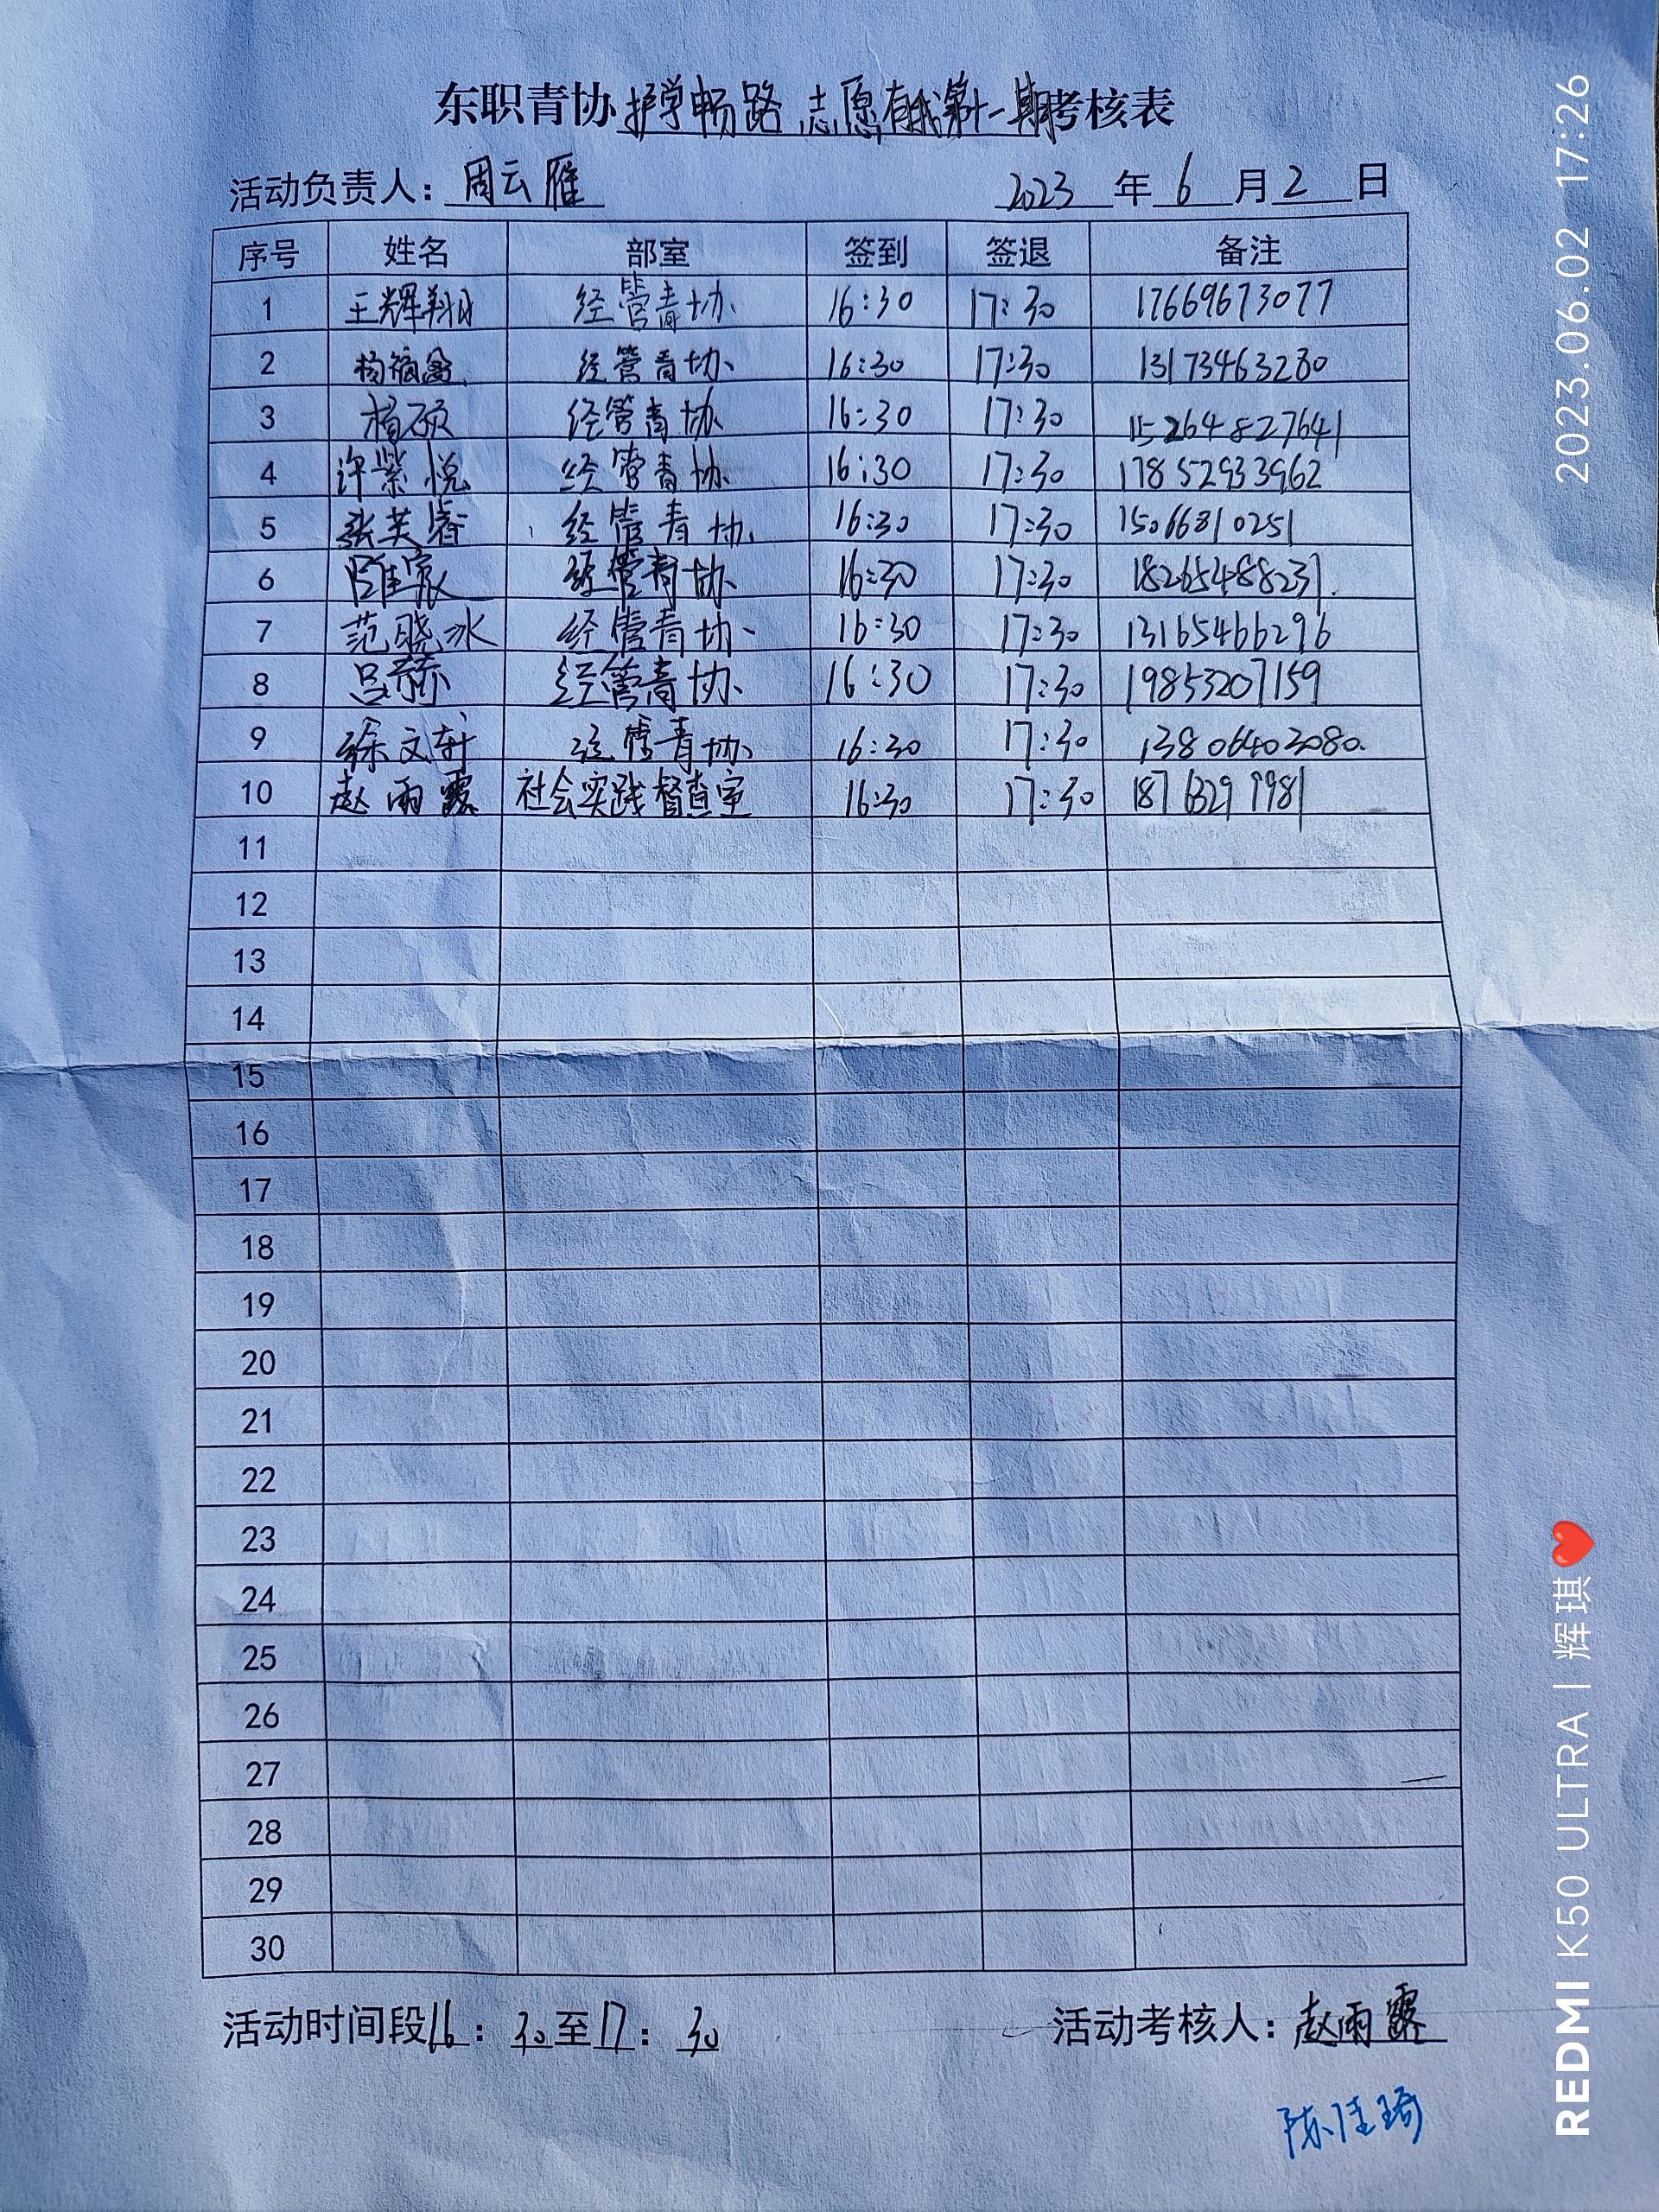 东职青协护学畅路 志愿有我第十一期考核表
活动负责人：周云雁 2023 年 6 月 2 日
序号 姓名 部室 签到 签退 备注
1 王辉翔 经管青协 16:30 17:30 17669673077
2 杨福鑫 经管青协 16:30 17:30 13173463280
3 杨硕 经管青协 16:30 17:30 15264827641
4 许紫悦 经管青协 16:30 17:30 17852933962
5 张芙睿 经管青协 16:30 17:30 15066810251
6 经管青协 16:30 17:30 18265488231
7 范晓冰 经管青协 16:30 17:30 13165466296
8 吕 经管青协 16:30 17:30 19853207159
9 徐文轩 经管青协 16:30 17:30 13806402080
10 赵雨露 社会实践督查室 16:30 17:30 18763291981
11
12
13
14
15
16
17
18
19
20
21
22
23
24
25
26
27
28
29
30
活动时间段16：30至17：30 活动考核人：赵雨露
陈佳琦
2023.06.02 17:26
REDMI K50 ULTRA | 辉琪